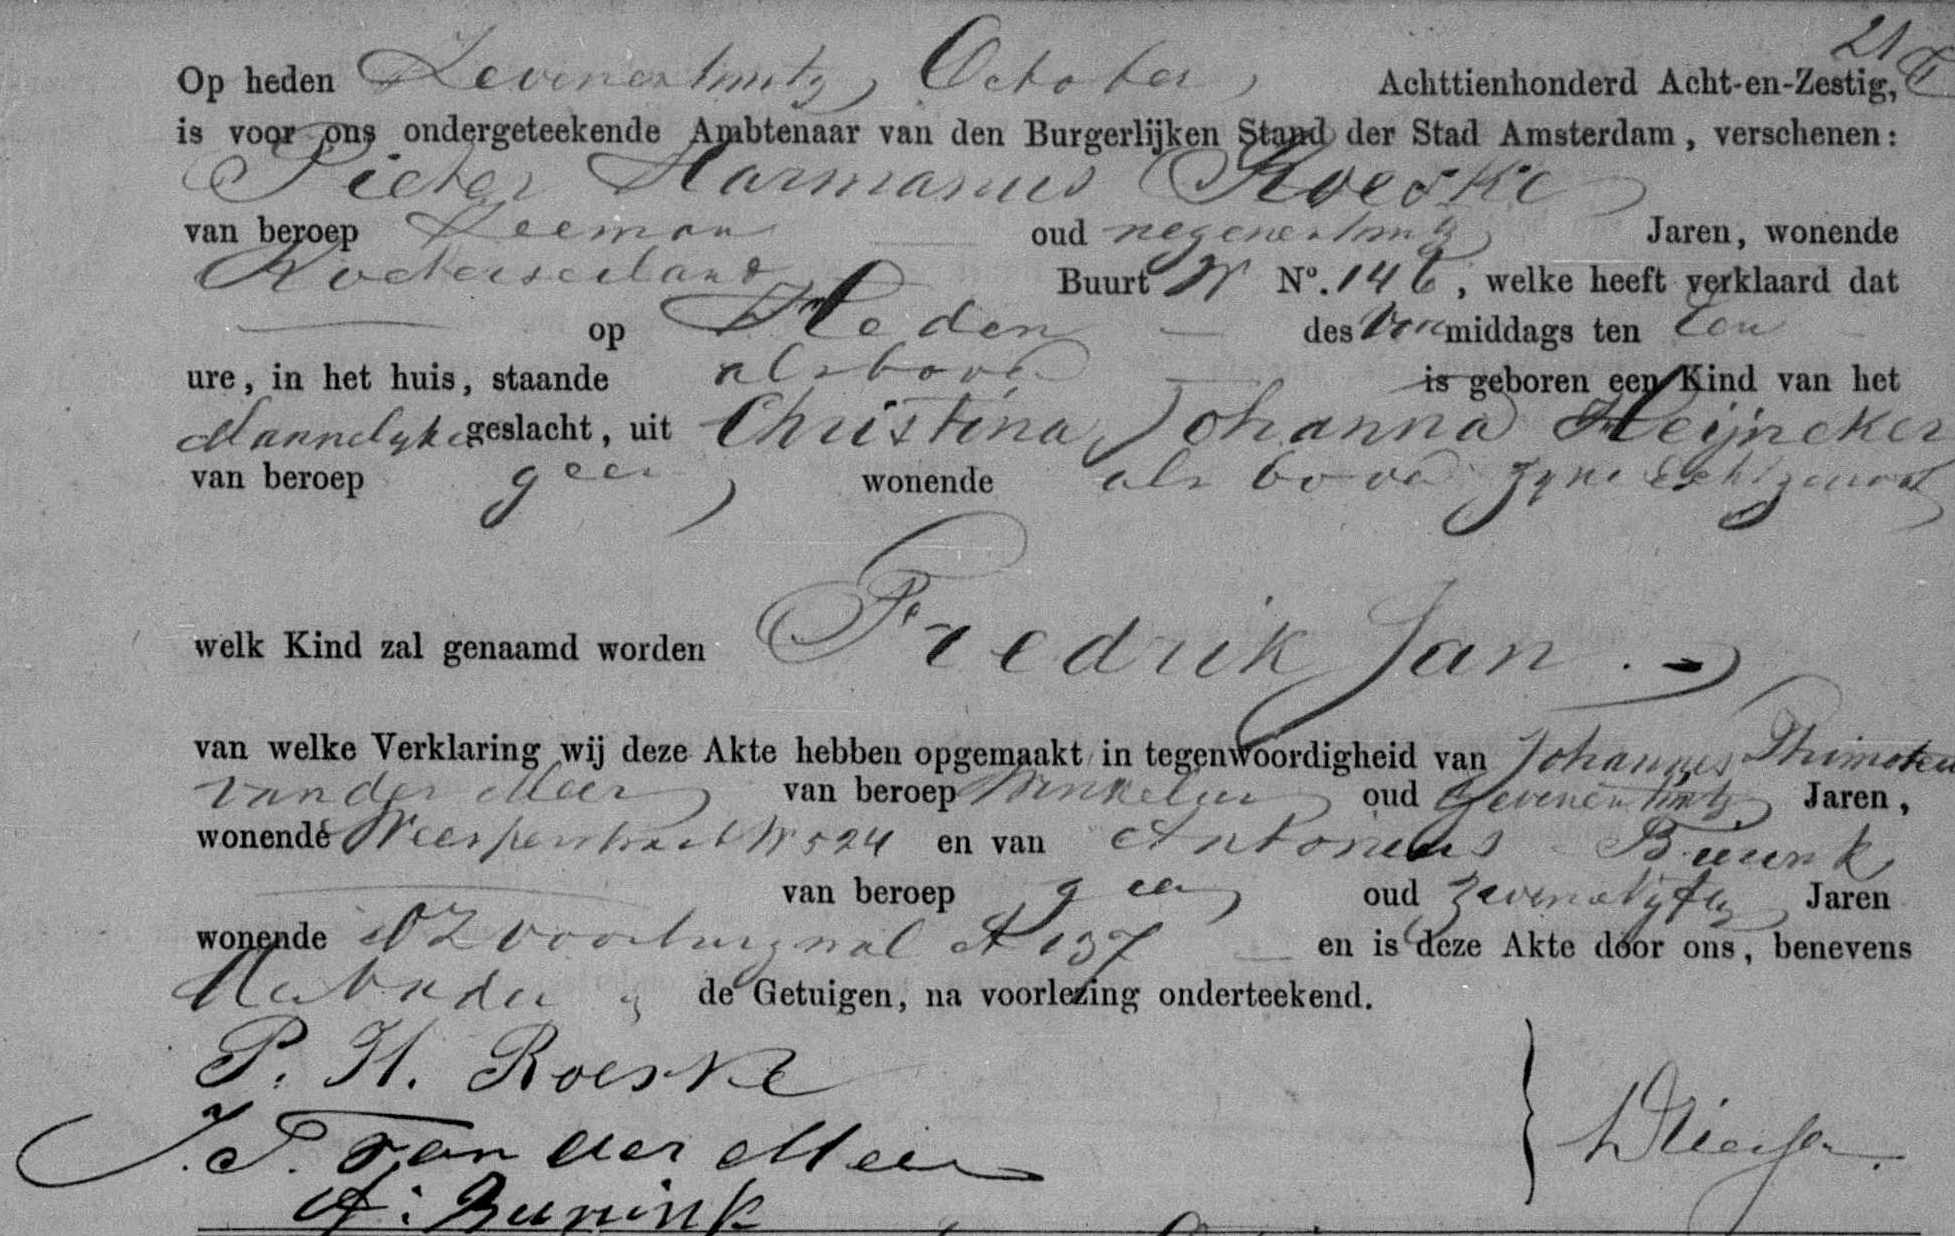 21
Op heden Zevenentwintig October Achttienhonderd Acht-en-Zestig,
is voor ons ondergeteekende Ambtenaar van den Burgerlijken Stand der Stad Amsterdam, verschenen:
Pieter Harmanus Roeske
van beroep Zeeman oud negenentwintig Jaren, wonende
Buurt W No. 146, welke heeft verklaard dat
op Heden des Voormiddags ten Een
ure, in het huis, staande alsboven is geboren een Kind van het
Mannelyke geslacht, uit Christina Johanna Heijneker
van beroep geen, wonende als boven zyne Echtgenoot
welk Kind zal genaamd worden Fredrik Jan.
van welke Verklaring wij deze Akte hebben opgemaakt in tegenwoordigheid van Johannes
van der Meer van beroep Winkelier oud Zevenentwintig Jaren,
wonende Weesperstraat W 524 en van Antonius Bunink
van beroep geen oud zevenenvyftig Jaren
wonende OZ Voorburgwal A 137 en is deze Akte door ons, benevens
de Getuigen, na voorlezing onderteekend.
P. H. Roeske
J. T. van der Meer
A: Bunink